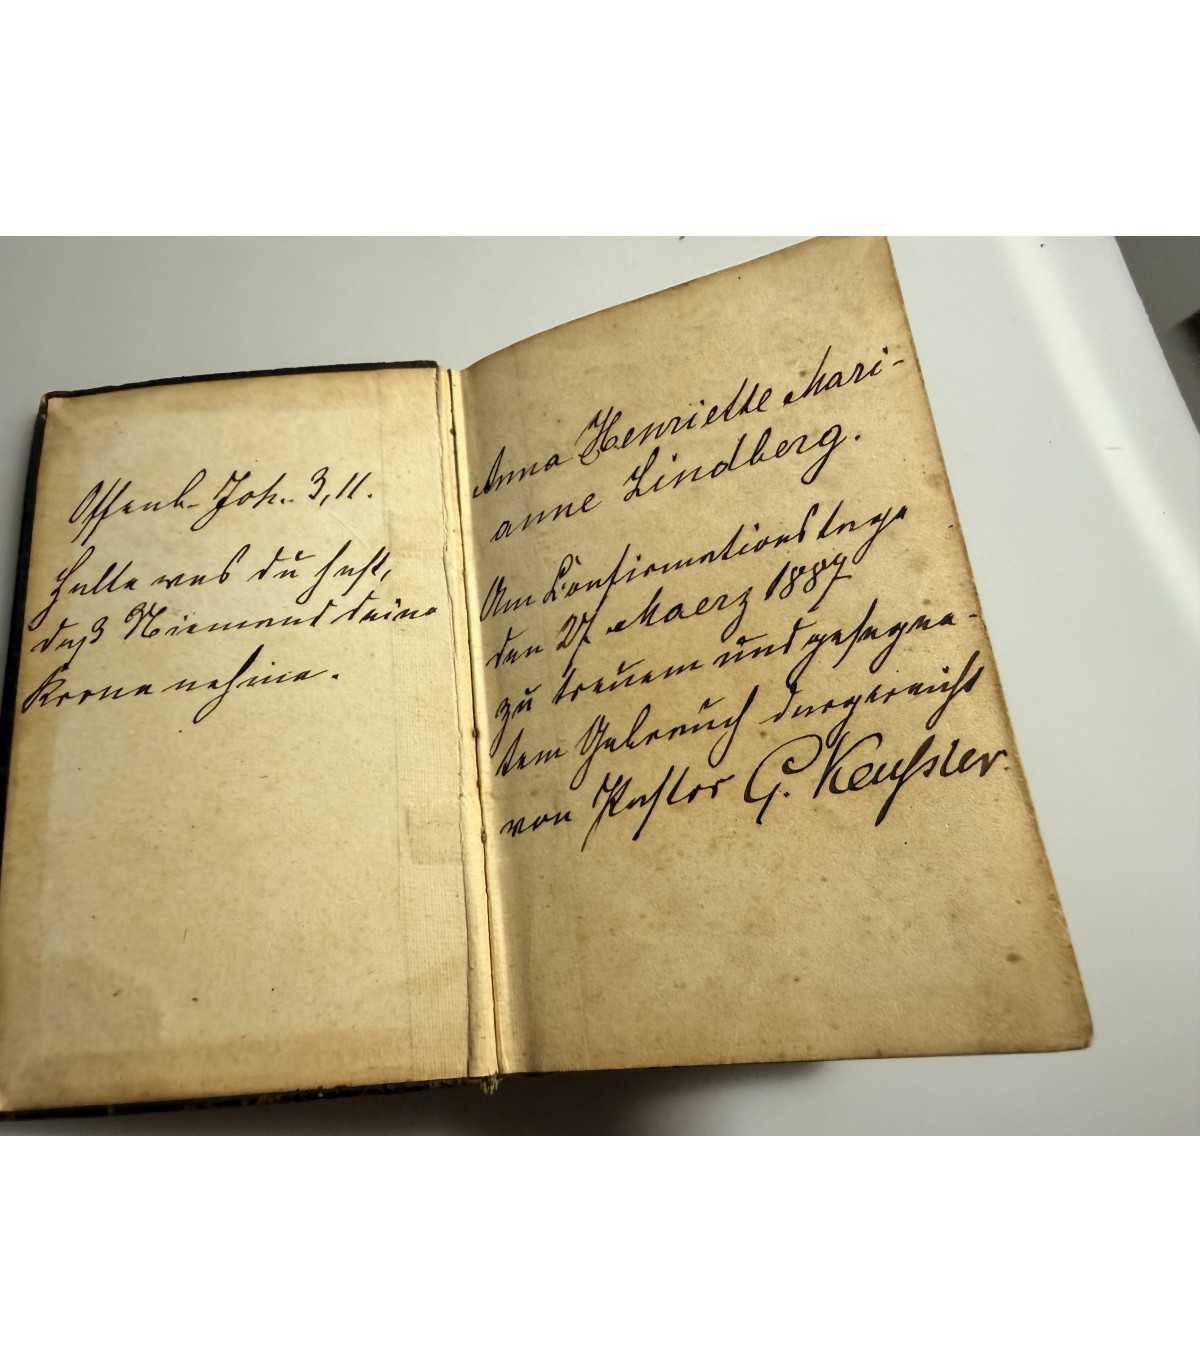 Offenb. Joh. 3, 11.
Halte was du hast,
daß Niemand deine
Krone nehme.
Anna Henriette Mari-
anne Lindberg.
Am Confirmationstage
den 27 Maerz 1887
zu treuem und gesegne-
tem Gebrauch dargereicht
von Pastor G. Keußler.